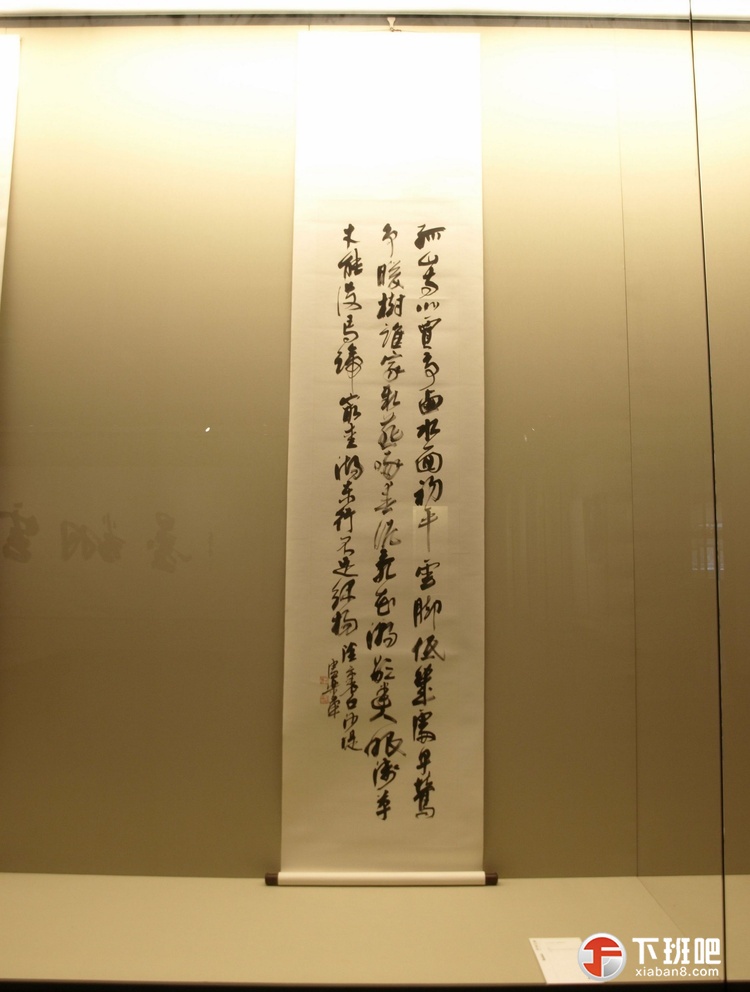 孤山寺北賈亭西水面初平雲脚低幾處早鶯
爭暖樹誰家新燕啄春泥亂花漸欲迷人眼淺草
才能沒馬蹄最愛湖東行不足綠楊陰裏白沙堤
下班吧
xiaban8.com